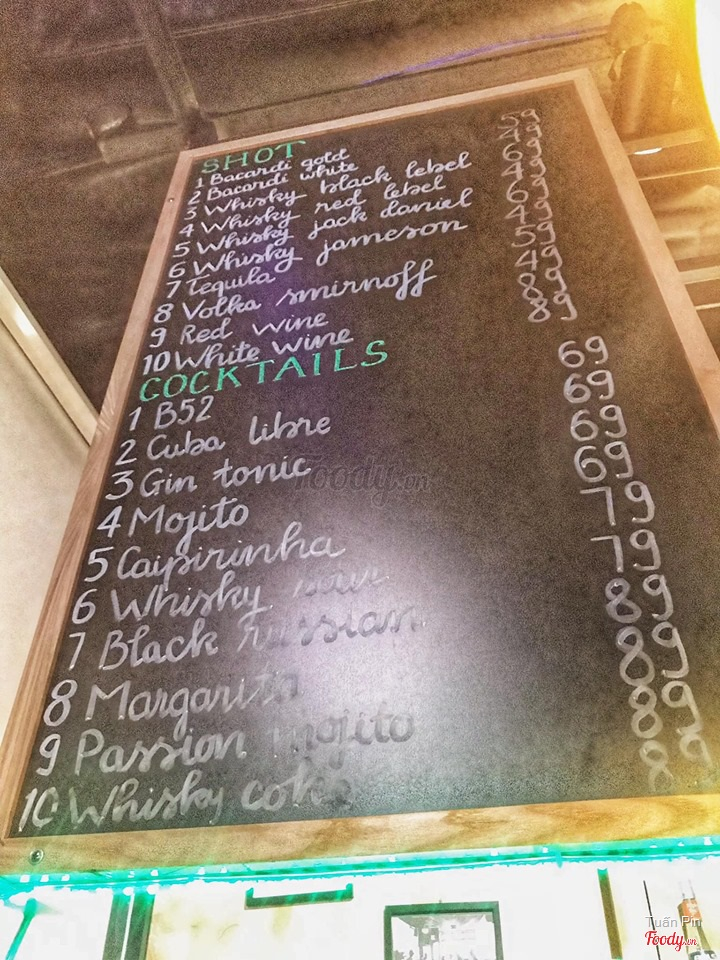 SHOT
1 Bacardi gold 59
2 Bacardi white 49
3 Whisky black lebel 69
4 Whisky red lebel 49
5 Whisky jack daniel 69
6 Whisky jameson 49
7 Tequila 59
8 Volka smirnoff 49
9 Red wine 89
10 White wine 89
COCKTAILS
1 B52 69
2 Cuba libre 69
3 Gin tonic 69
4 Mojito 69
5 Caipirinha 79
6 Whisky sour 79
7 Black russian 89
8 Margarita 89
9 Passion mojito 89
10 Whisky coke 89
Foody.vn
Tuấn Pin
Foody.vn